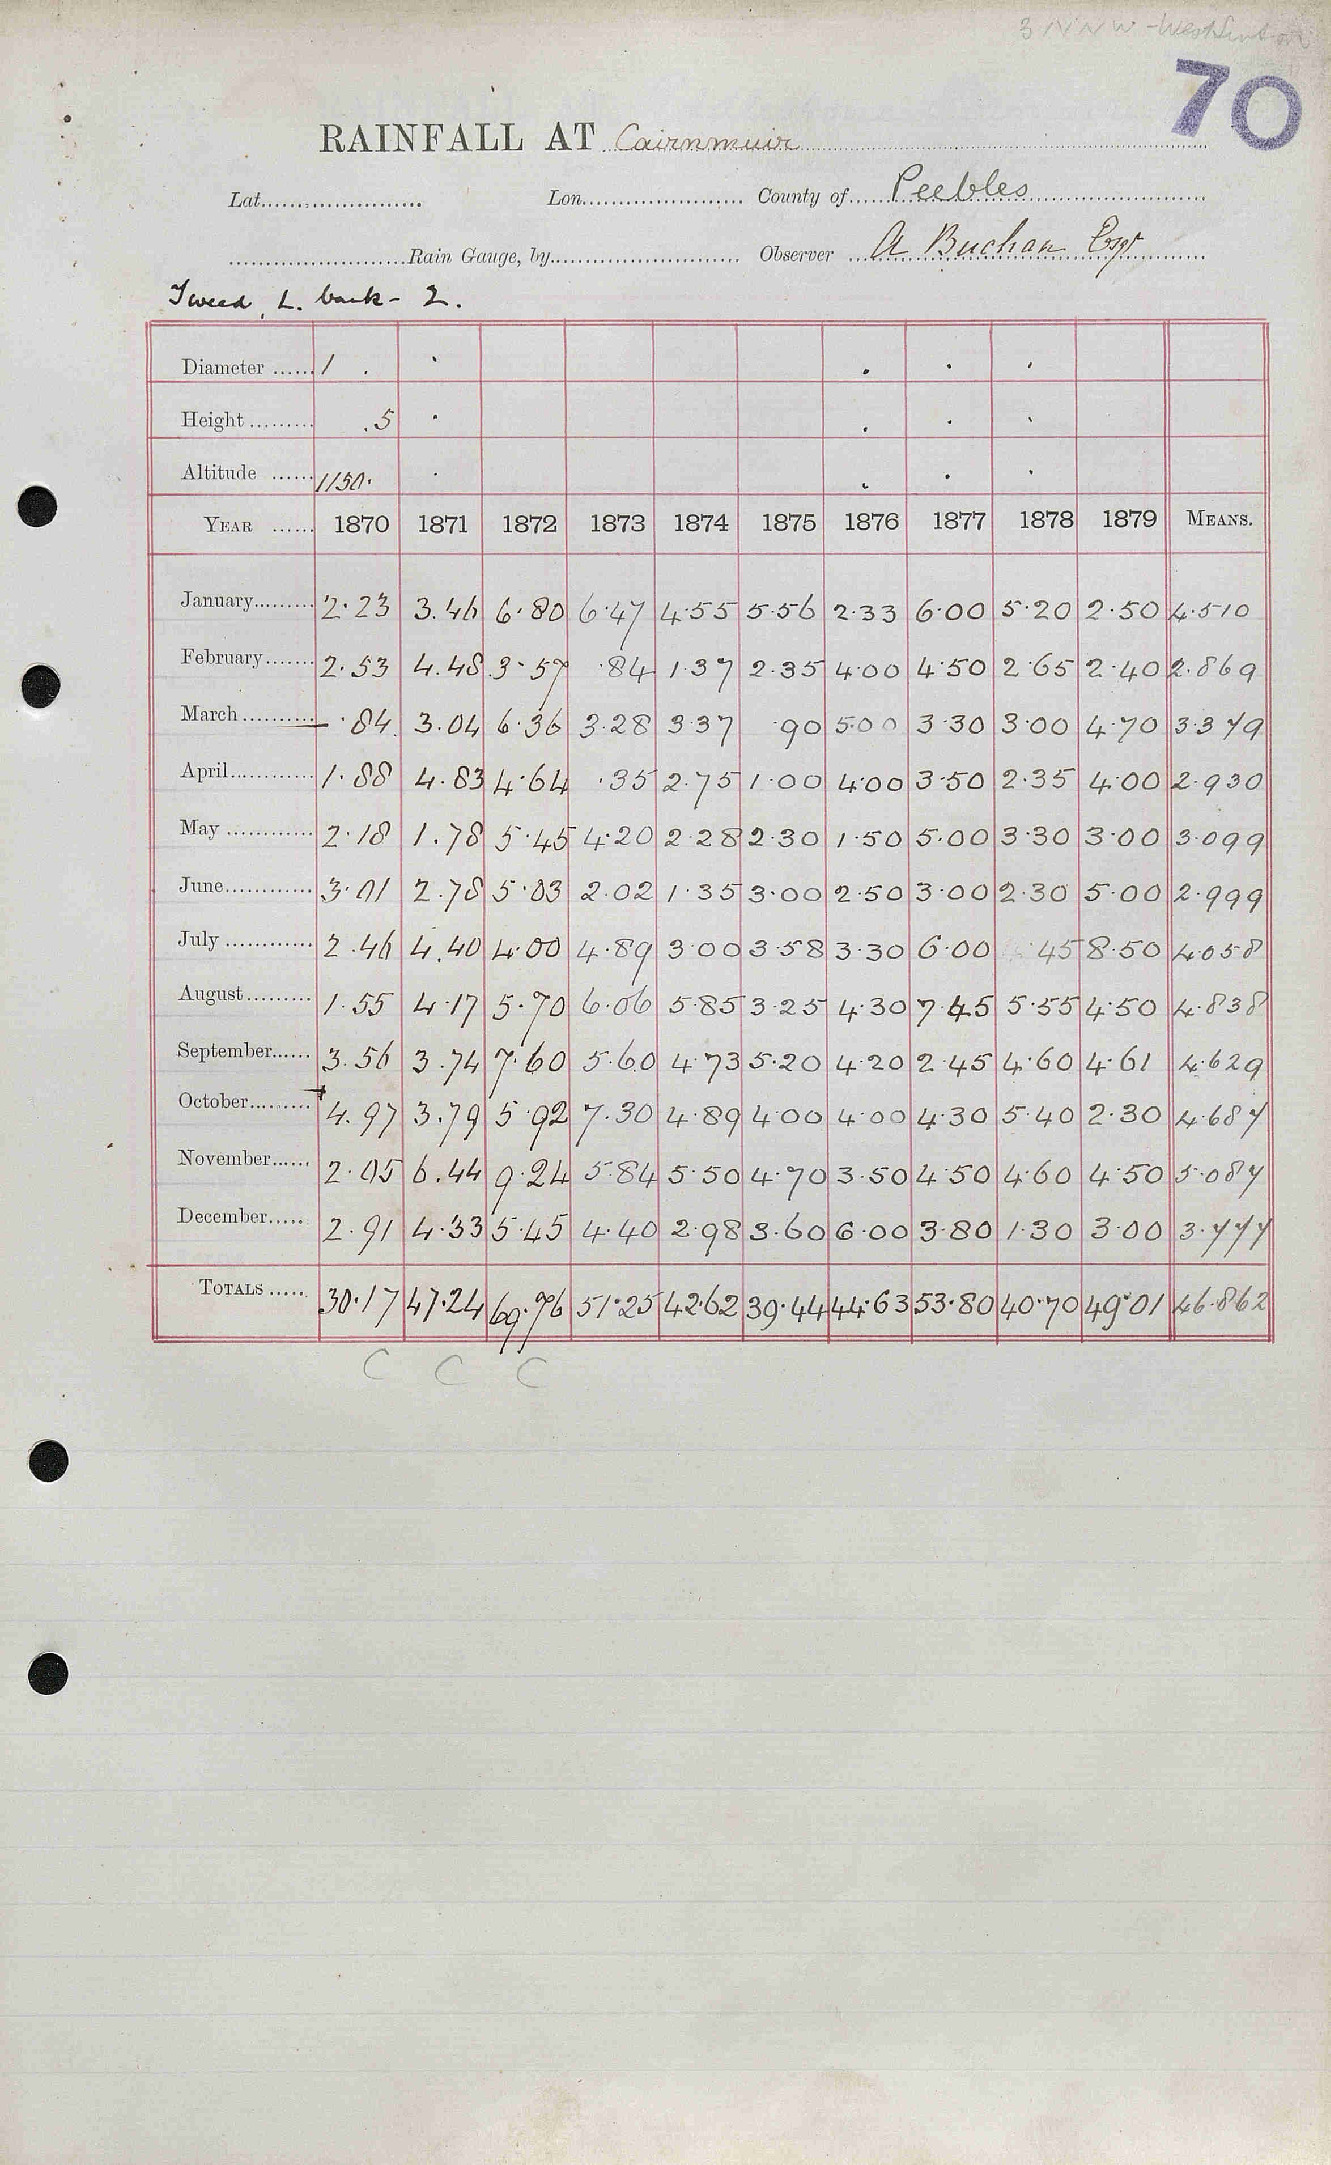 3 NNW - West Linton
70
RAINFALL AT Cairnmuir
Lat. Lon. County of Peebles
Rain Gauge, by Observer A Buchan Esqr
Tweed, L. bank - 2.
Diameter 1 .
Height .5
Altitude 1150.
YEAR 1870 1871 1872 1873 1874 1875 1876 1877 1878 1879 MEANS.
January 2.23 3.46 6.80 6.47 4.55 5.56 2.33 6.00 5.20 2.50 4.510
February 2.53 4.48 3.57 .84 1.37 2.35 4.00 4.50 2.65 2.40 2.869
March .84 3.04 6.36 3.28 3.37 .90 5.00 3.30 3.00 4.70 3.379
April 1.88 4.83 4.64 .35 2.75 1.00 4.00 3.50 2.35 4.00 2.930
May 2.18 1.78 5.45 4.20 2.28 2.30 1.50 5.00 3.30 3.00 3.099
June 3.01 2.78 5.03 2.02 1.35 3.00 2.50 3.00 2.30 5.00 2.999
July 2.46 4.40 4.00 4.89 3.00 3.58 3.30 6.00 .45 8.50 4.058
August 1.55 4.17 5.70 6.06 5.85 3.25 4.30 7.45 5.55 4.50 4.838
September 3.56 3.74 7.60 5.60 4.73 5.20 4.20 2.45 4.60 4.61 4.629
October 4.97 3.79 5.92 7.30 4.89 4.00 4.00 4.30 5.40 2.30 4.687
November 2.05 6.44 9.24 5.84 5.50 4.70 3.50 4.50 4.60 4.50 5.087
December 2.91 4.33 5.45 4.40 2.98 3.60 6.00 3.80 1.30 3.00 3.777
TOTALS 30.17 47.24 69.76 51.25 42.62 39.44 44.63 53.80 40.70 49.01 46.862
C C C